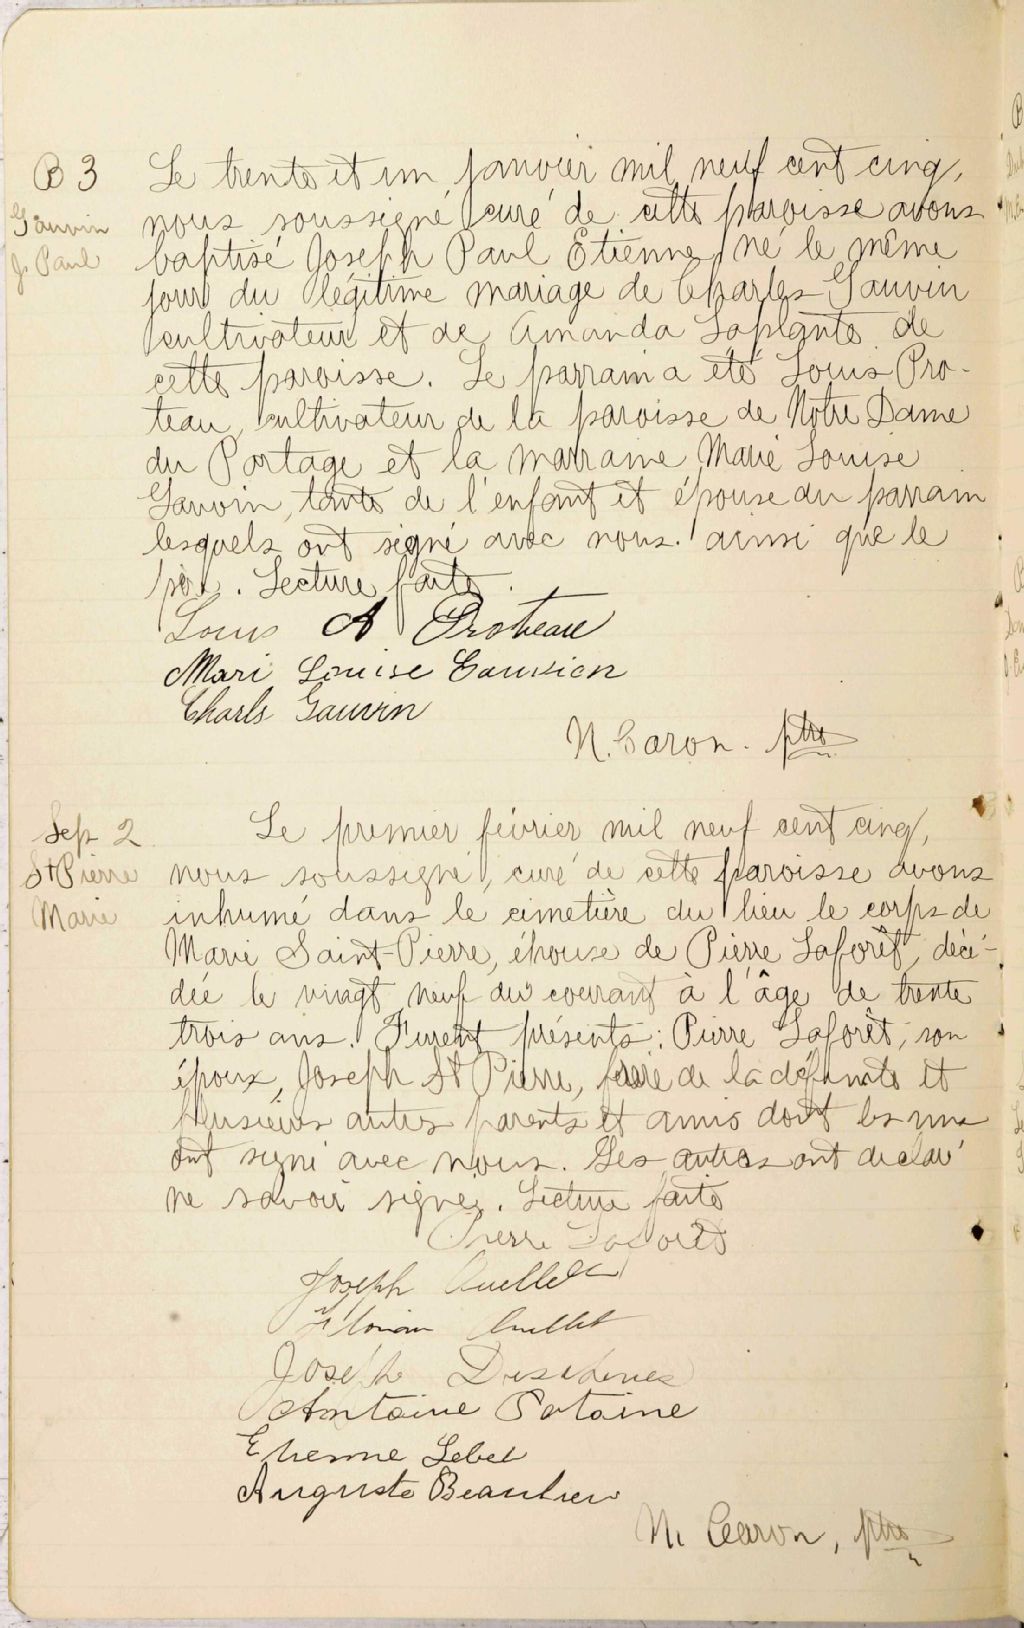 B 3
Gauvin
J. Paul
Le trente et un janvier mil neuf cent cinq,
nous soussigné curé de cette paroisse avons
baptisé Joseph Paul Etienne, né le même
jour du légitime mariage de Charles Gauvin
cultivateur et de Amanda Laplante de
cette paroisse. Le parrain a été Louis Pro-
teau, cultivateur de la paroisse de Notre Dame
du Portage et la marraine Marie Louise
Gauvin, tante de l'enfant et épouse du parrain
lesquels ont signé avec nous. ainsi que le
père. Lecture faite.
Louis A Proteau
Mari Louise Gauvien
Charls Gauvin
N. Caron. ptre
Sep 2
St Pierre
Marie
Le premier février mil neuf cent cinq,
nous soussigné, curé de cette paroisse avons
inhumé dans le cimetière du lieu le corps de
Marie Saint-Pierre, épouse de Pierre Laforêt, décé-
dée le vingt neuf du courant à l'âge de trente
trois ans. Furent présents: Pierre Laforêt, son
époux, Joseph St Pierre, frère de la défunte et
plusieurs autres parents et amis dont les uns
ont signé avec nous. Les autres ont déclaré
ne savoir signer. Lecture faite
Pierre Laforêt
Joseph Ouellet
Florian Ouellet
Joseph Deschenes
Antoine Potoine
Etienne Lebel
Auguste Beaulieu
N. Caron, ptre